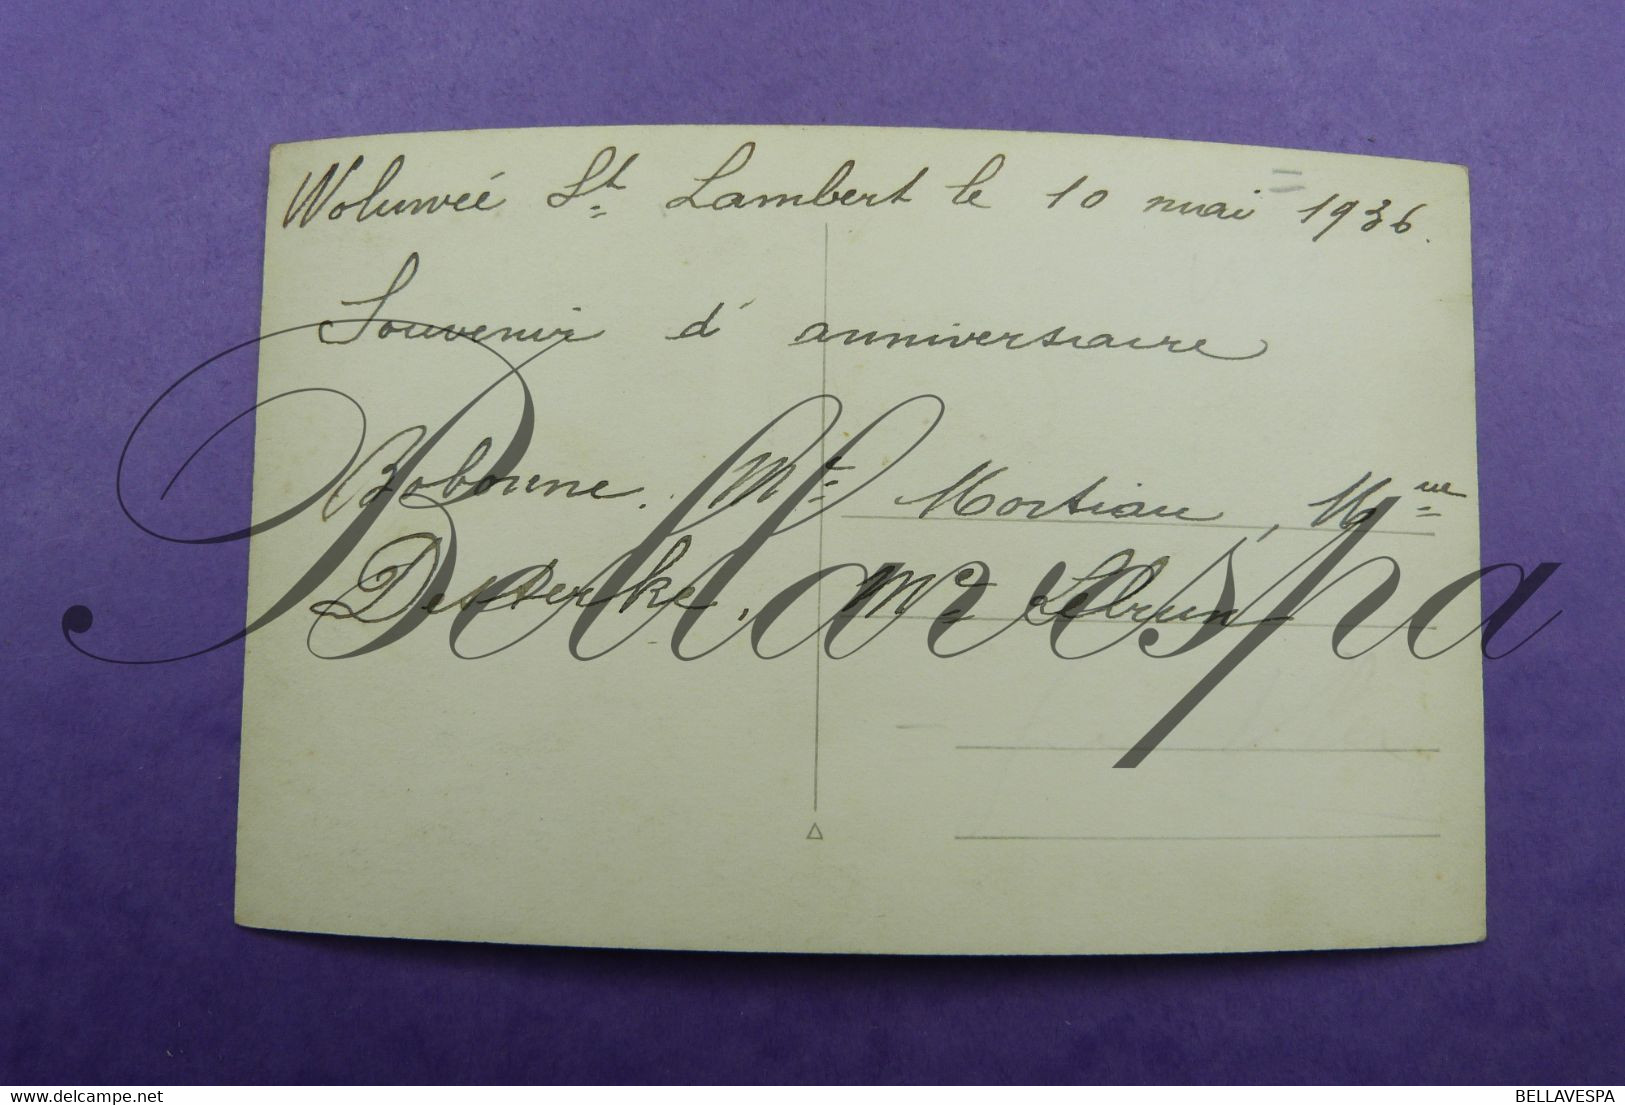 Woluwée St Lambert le 10 mai 1936.
Souvenir d'anniversaire
Bobonne. Mr Mortiau, Mme
Desterke, Mr Lebrun
Bellavespa
BELLAVESPA
delcampe.net